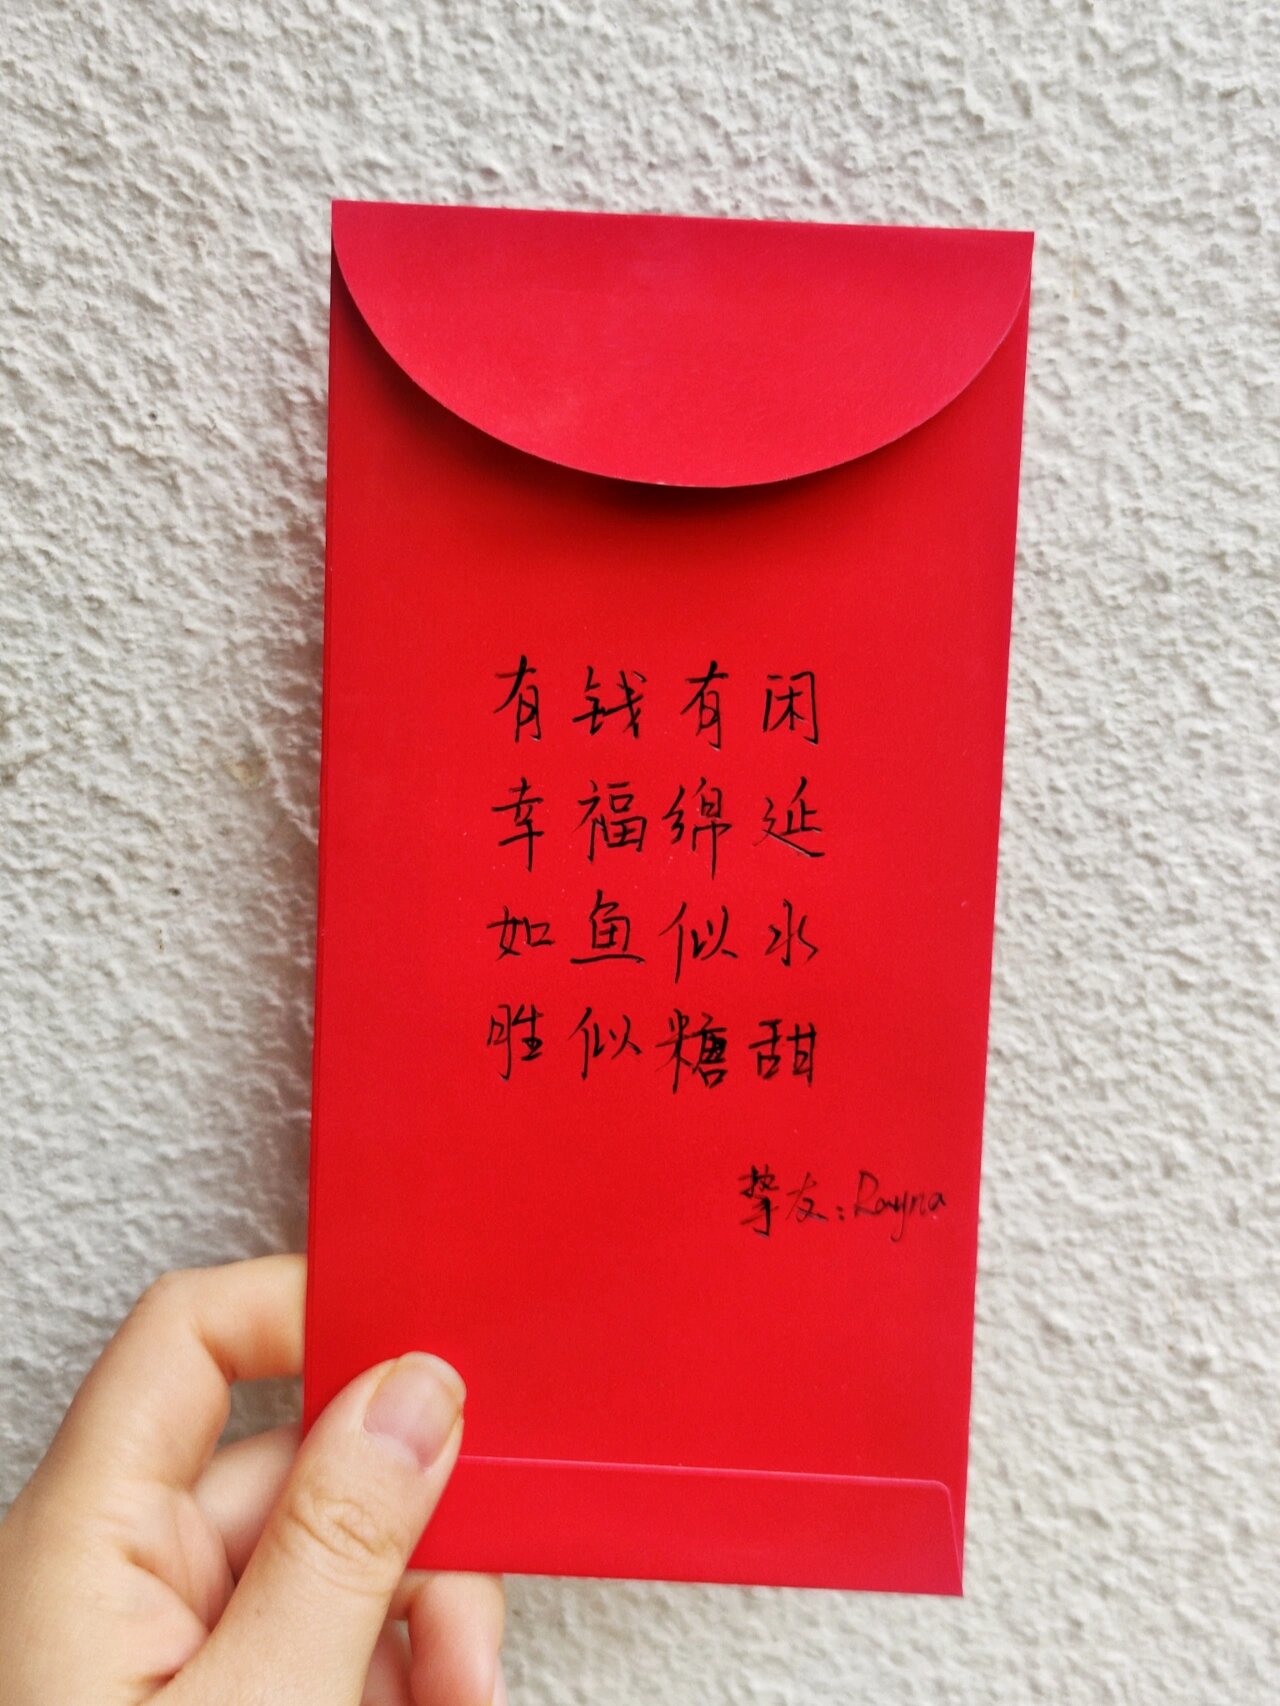 有钱有闲
幸福绵延
如鱼似水
胜似糖甜
挚友：Rayna